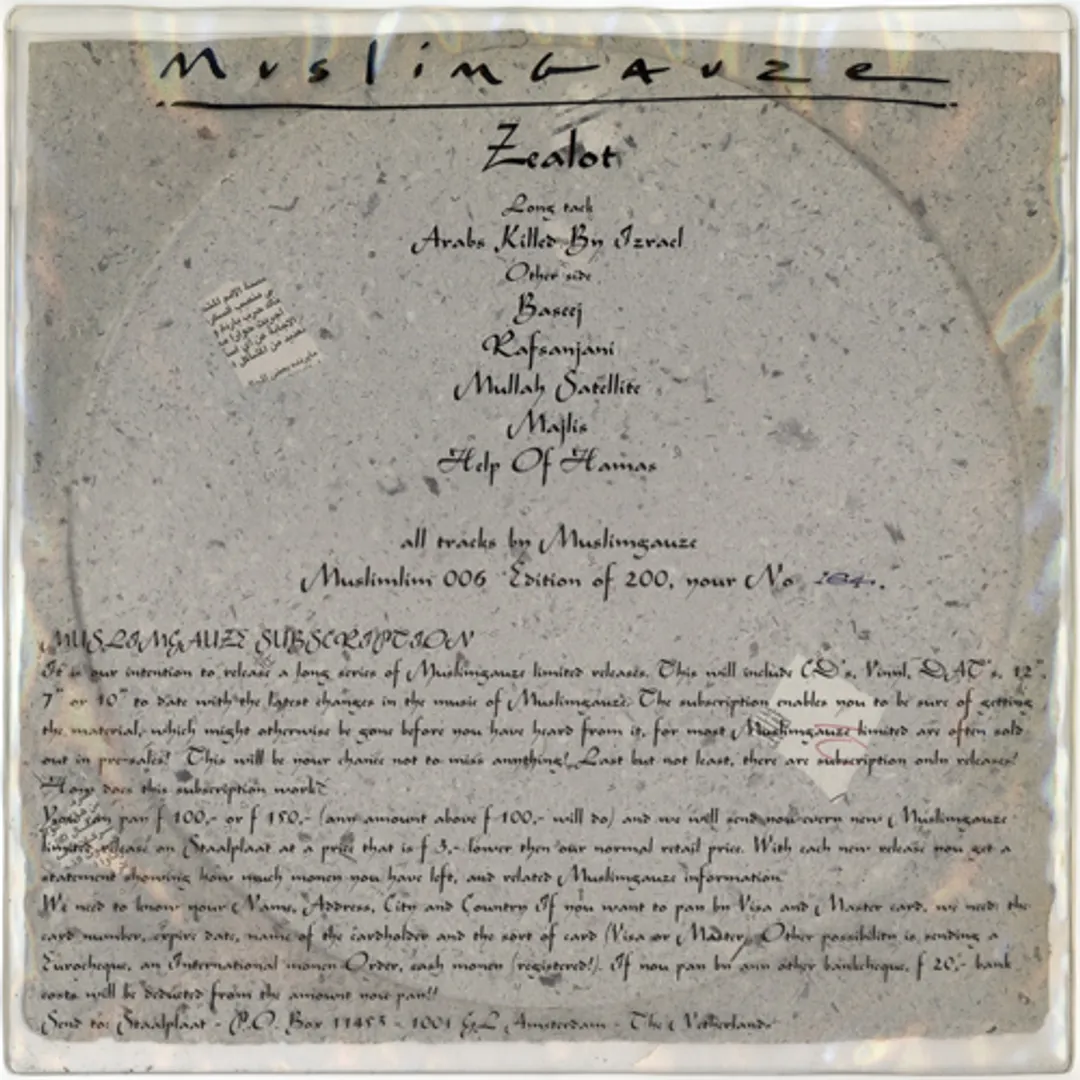 MuslimGauze
Zealot
Long tack
Arabs Killed By Izrael
Other side
Baseej
Rafsanjani
Mullah Satellite
Majlis
Help Of Hamas
all tracks by Muslimgauze
Muslimlim 006 Edition of 200, your No 184.
MUSLIMGAUZE SUBSCRIPTION
It is our intention to release a long series of Muslimgauze limited releases. This will include CD's, Vinyl, DAT's, 12",
7" or 10" to date with the latest changes in the music of Muslimgauze. The subscription enables you to be sure of getting
the material, which might otherwise be gone before you have heard from it, for most Muslimgauze limited are often sold
out in pre-sales! This will be your chance not to miss anything! Last but not least, there are subscription only releases!
How does this subscription work?
You can pay f 100,- or f 150,- (any amount above f 100,- will do) and we will send you every new Muslimgauze
limited release on Staalplaat at a price that is f 3,- lower then our normal retail price. With each new release you get a
statement showing how much money you have left, and related Muslimgauze information
We need to know your Name, Address, City and Country If you want to pay by Visa and Master card, we need: the
card number, expire date, name of the cardholder and the sort of card (Visa or Master) Other possibility is sending a
Eurocheque, an International money Order, cash money (registered!). If you pay by any other bankcheque, f 20,- bank
costs will be deducted from the amount you pay!!
Send to: Staalplaat - P.O. Box 11453 - 1001 GL Amsterdam - The Netherlands